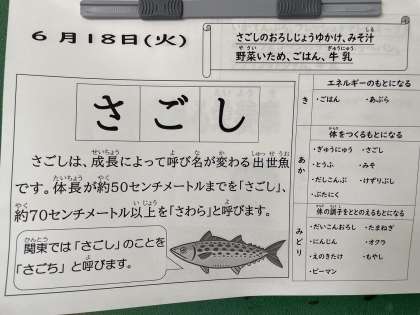 6月18日(火)
さごしのおろしじょうゆかけ、みそ汁
野菜いため、ごはん、牛乳
さごし
さごしは、成長によって呼び名が変わる出世魚
です。体長が約50センチメートルまでを「さごし」、
約70センチメートル以上を「さわら」と呼びます。
関東では「さごし」のことを
「さごち」と呼びます。
き
エネルギーのもとになる
・ごはん ・あぶら
あか
体をつくるもとになる
・ぎゅうにゅう ・さごし
・とうふ ・みそ
・だしこんぶ ・けずりぶし
・ぶたにく
みどり
体の調子をととのえるもとになる
・だいこんおろし ・たまねぎ
・にんじん ・オクラ
・えのきたけ ・もやし
・ピーマン